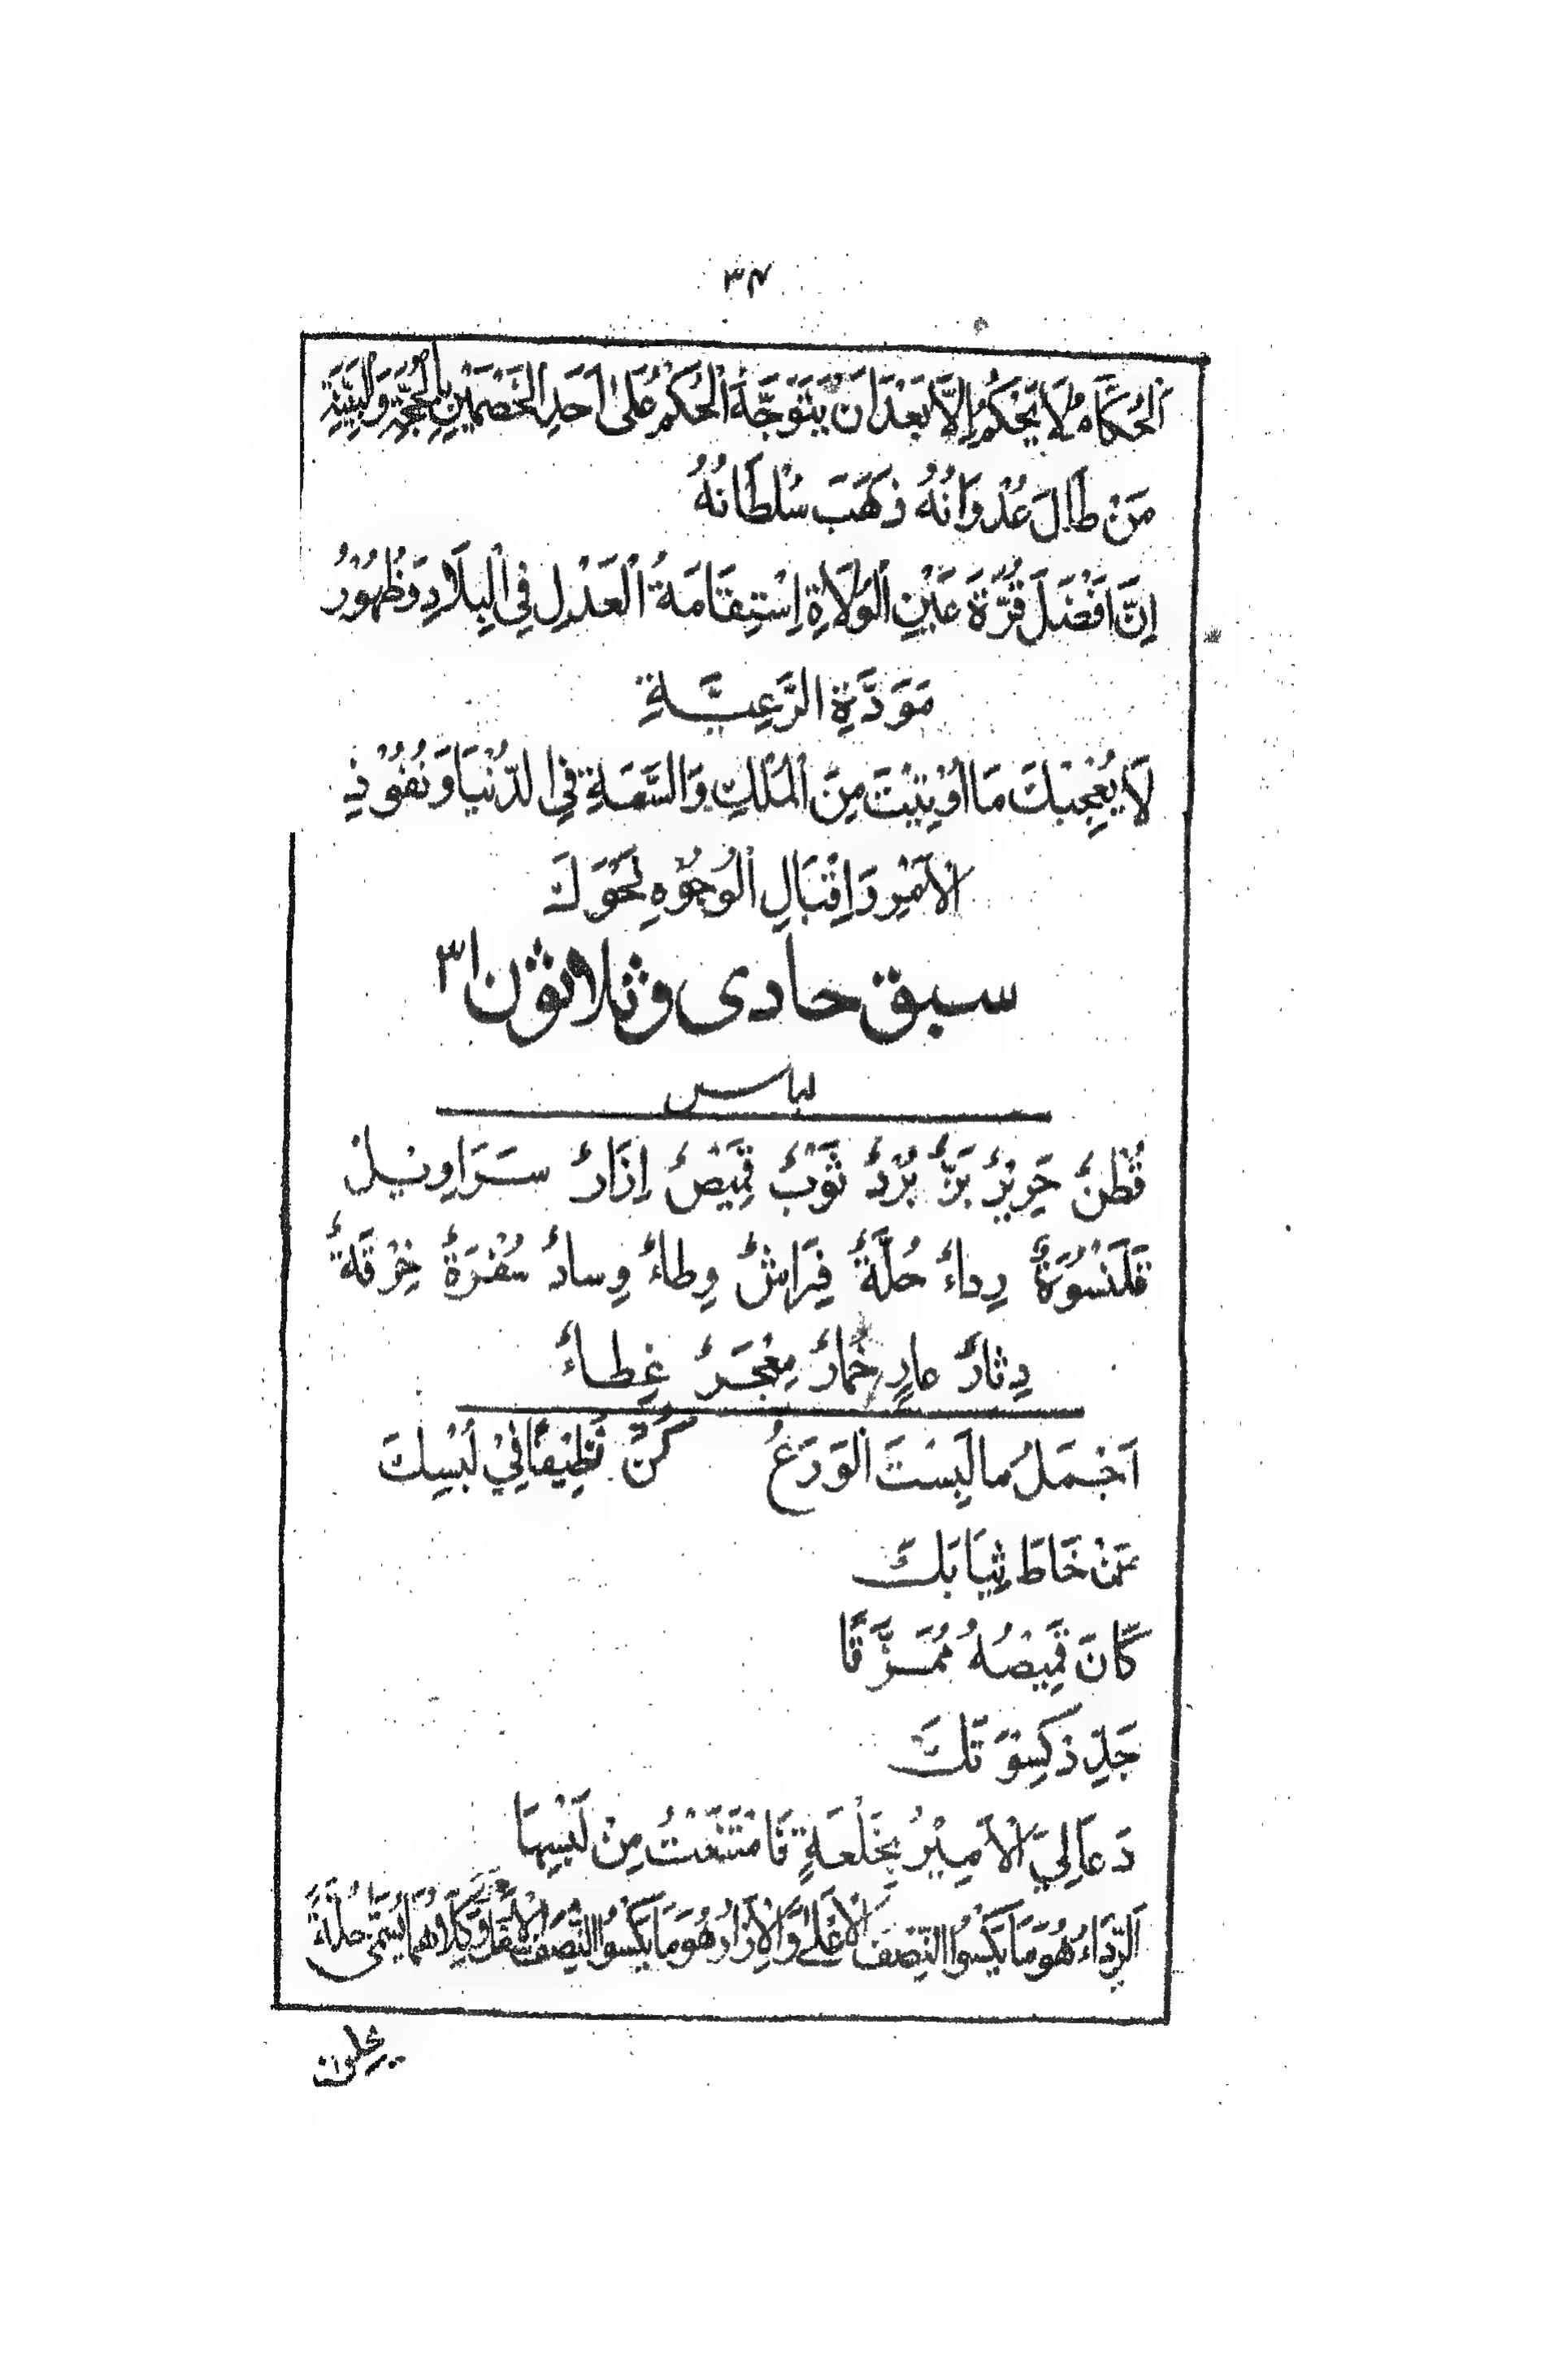 ٣٨
اَلْحُكَّامُ لَا تَحْكُمُ اِلَّا بَعْدَ اَنْ يَتَوَجَّهَ اَلْحُكْمُ عَلٰى اَحَدِ الْخَصْمَيْنِ بِالْحُجَّةِ وَالْبَيِّنَةِ
مَنْ طَالَ عُدْوَانُهُ ذَهَبَ سُلْطَانُهُ
اِنَّ اَفْضَلَ قُرَّةَ عَيْنِ الْوُلَاةِ اِسْتِقَامَةُ الْعَدْلِ فِى الْبِلَادِ وَظُهُوْرُ
مَوَدَّةِ الرَّعِيَّةِ
لَا يُعْجِبْكَ مَا اُوْتِيْتَ مِنَ الْمُلْكِ وَالسَّعَةِ فِى الدُّنْيَا وَنُفُوْذِ
الْاَمْرِ وَاِقْبَالِ الْوُجُوْهِ نَحْوَكَ
سبق حادى وثلاثون ٣١
لباس
قُطْنٌ حَرِيْرٌ بَزٌّ بُرْدٌ ثَوْبٌ قَمِيْصٌ اِزَارٌ سَرَاوِيْلُ
قَلَنْسُوَةٌ رِداءٌ حُلَّةٌ فِرَاشٌ وِطاءٌ وِسادٌ سُفْرَةٌ خِرْقَةٌ
دِثارٌ عارٍ خِمارٌ مِعْجَرٌ غِطاءٌ
اَجْمَلُ ما لَبِسْتَ الْوَرَعُ كُنْ نَظِيْفًا فِيْ لُبْسِكَ
مَنْ خَاطَ ثِيَابَكَ
كَانَ قَمِيْصُهُ مُمَزَّقًا
جَدِّدْ كِسْوَتَكَ
دَعَا لِيَ الْاَمِيْرُ بِخَلْعَةٍ فَامْتَنَعْتُ مِنْ لُبْسِهَا
اَلرِّدَاءُ هُوَ مَا يَكْسُوا النِّصْفَ الْاَعْلٰى وَالْاِزَارُ هُوَ مَا يَكْسُوا النِّصْفَ الْاَسْفَلَ وَكِلَاهُمَا يُسَمّٰى حُلَّةً